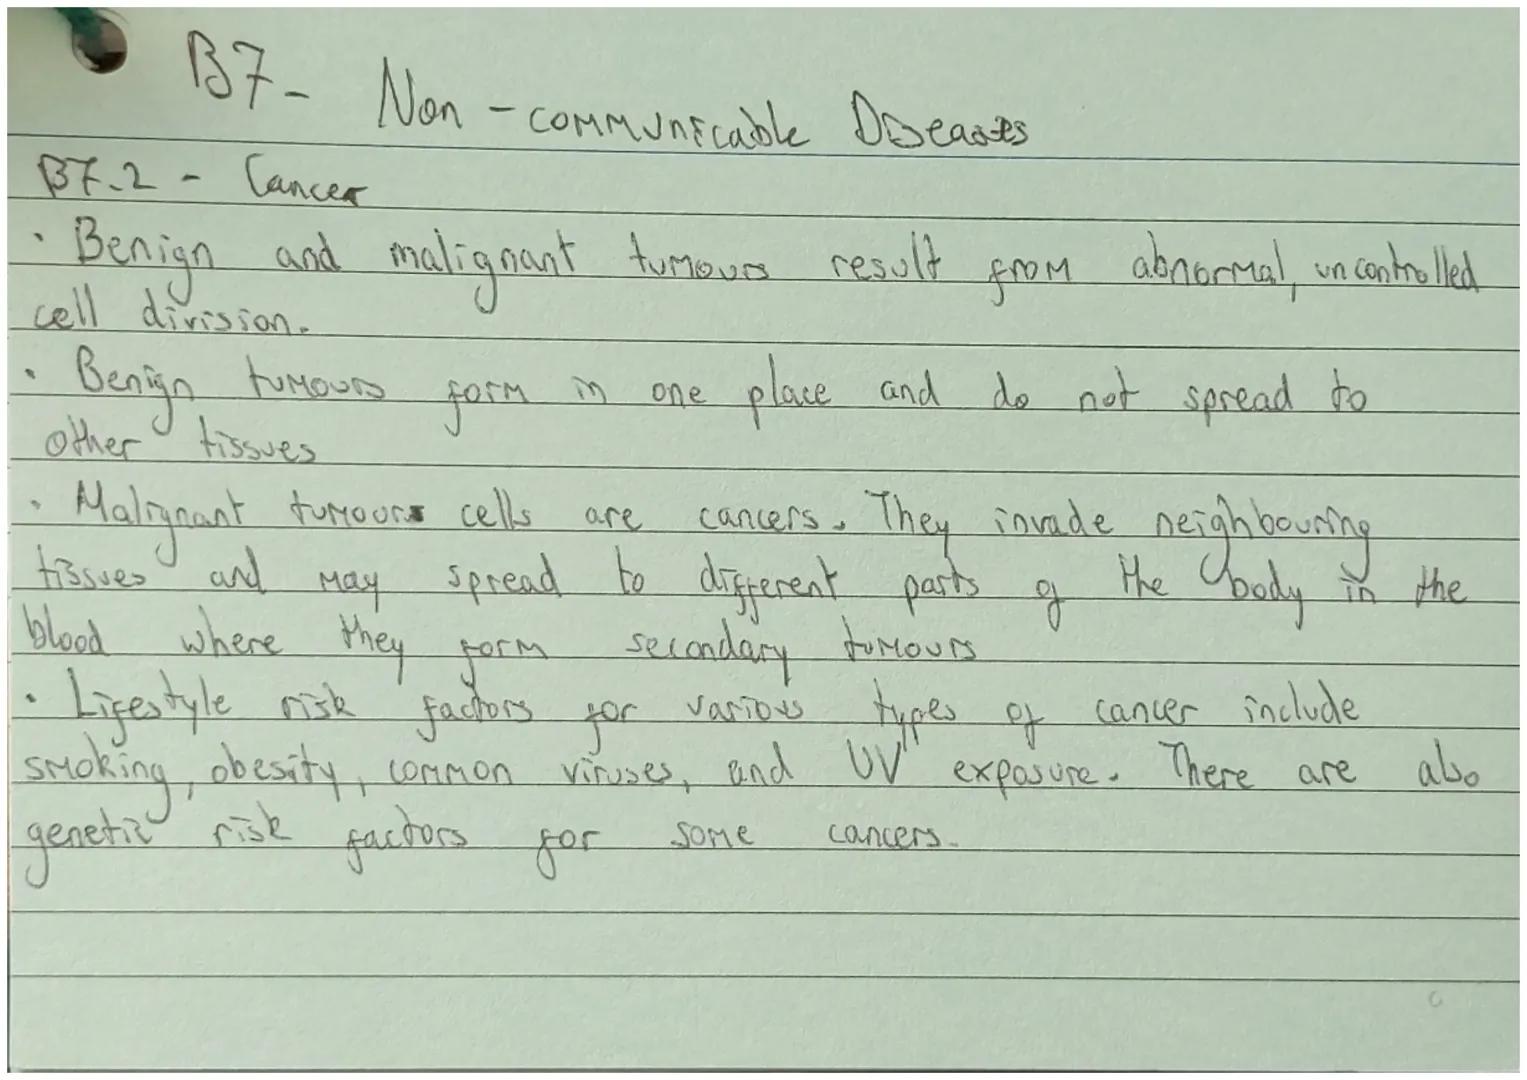 B7- Non-communicable Diseases
B7.2 - Cancer
· Benign and malignant tumours result from abnormal, uncontrolled
cell division.
· Benign tumours form in one place and do not spread to
other tissues
· Malignant tumours cells are cancers. They invade neighbouring
tissues and may spread to different parts of the body in the
blood where they form secondary tumours
· Lifestyle risk factors for various types of cancer include
smoking, obesity, common viruses, and UV exposure. There are also
genetic risk factors for some cancers.